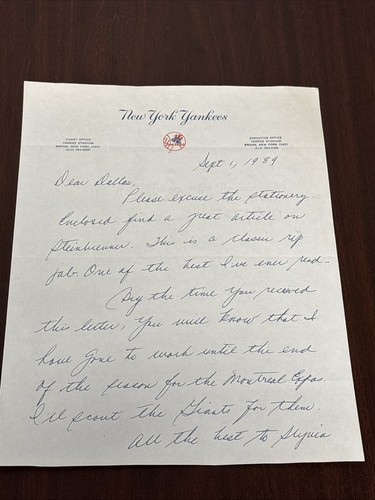 New York Yankees
TICKET OFFICE
YANKEE STADIUM
BRONX, NEW YORK 10451
EXECUTIVE OFFICE
YANKEE STADIUM
BRONX, NEW YORK 10451
Sept 1, 1989
Dear Dallas,
Please excuse the stationery.
Enclosed find a great article on
Steinbrenner. This is a classic rip
job. One of the best I've ever read.
By the time you received
this letter, you will know that I
have gone to work until the end
of the season for the Montreal Expos.
I'll scout the Giants for them.
All the best to Sylvia